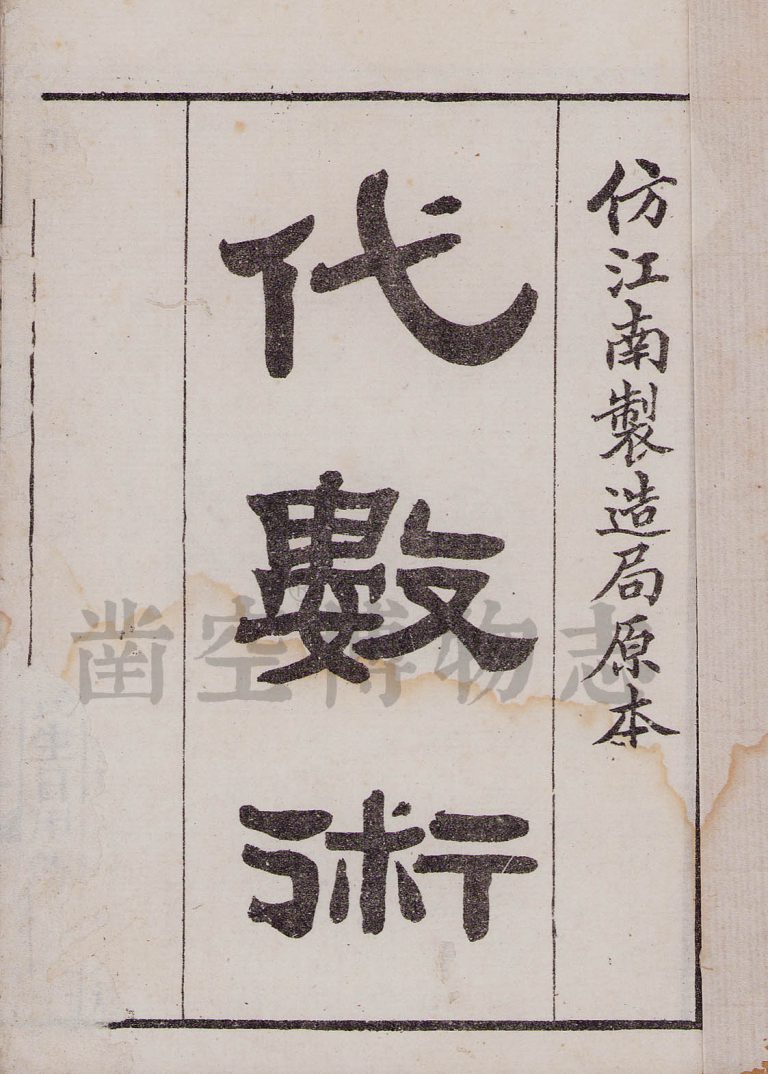 仿江南製造局原本
代數術
凿空博物志